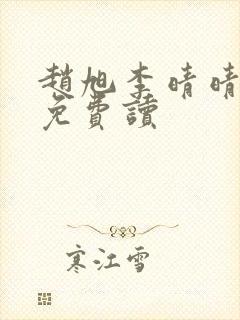 趙旭李晴晴
免費讀
寒江雪